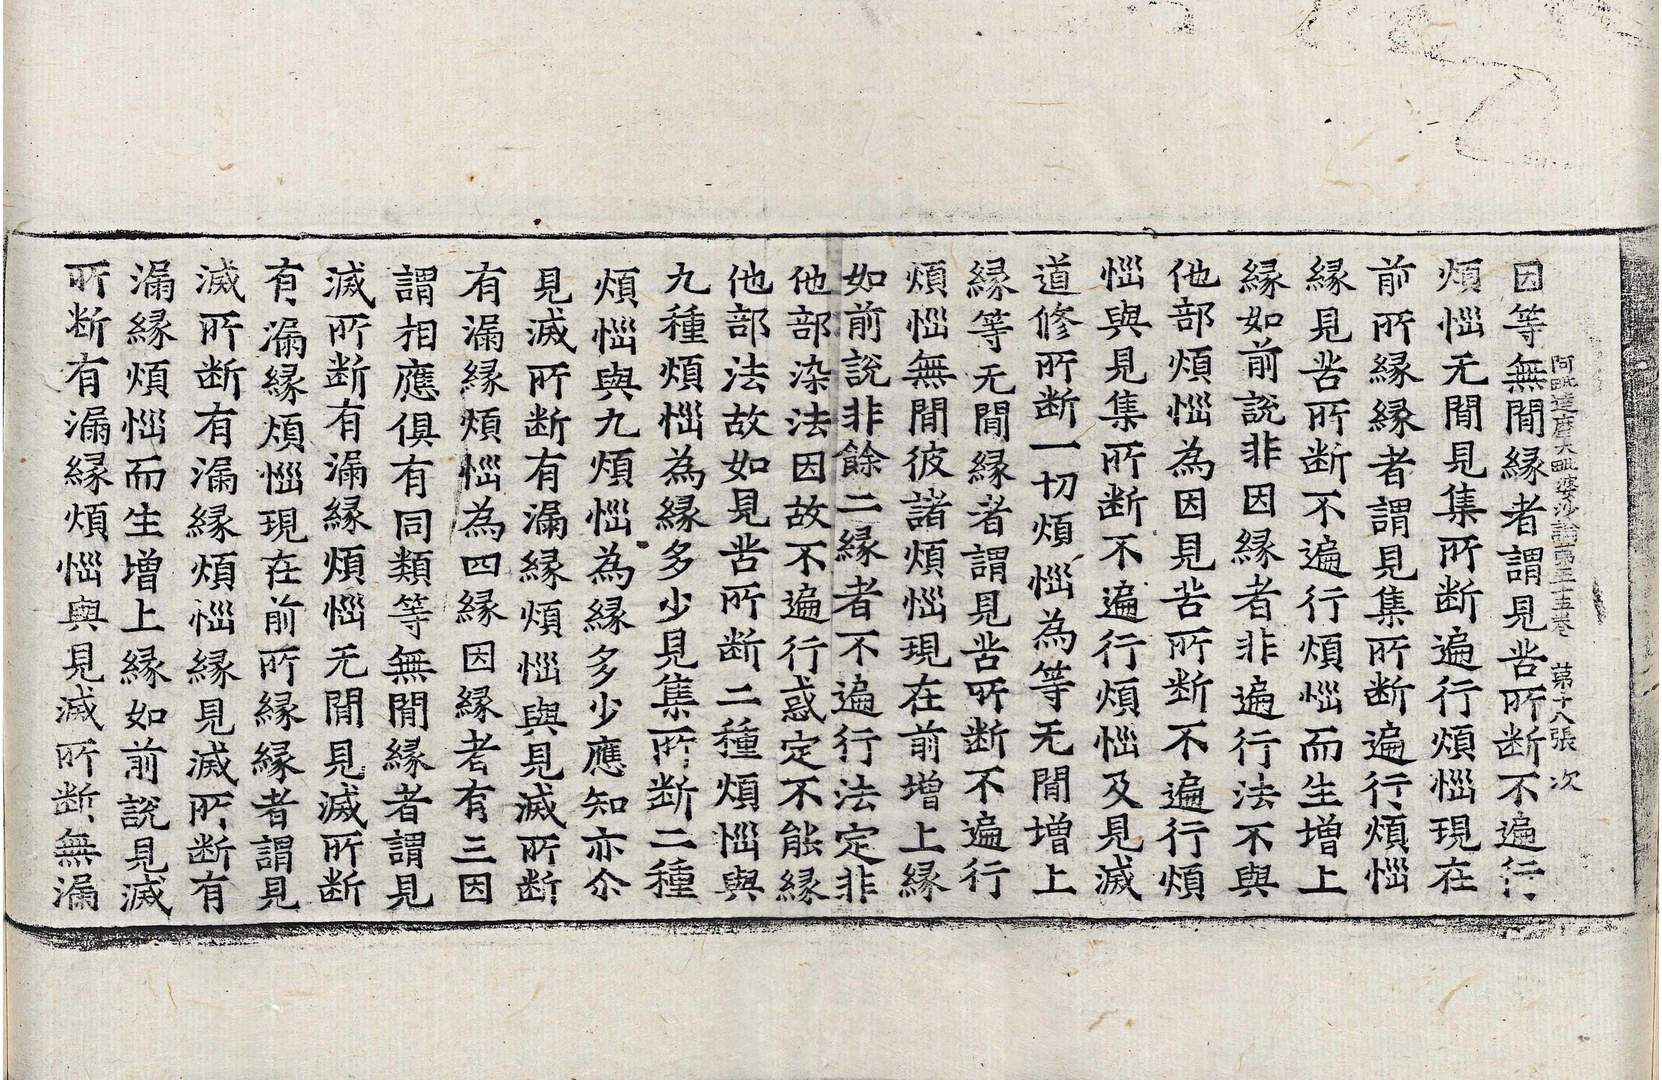 阿毗達磨大毗婆沙論第五十五卷 第十八張 次
因等無閒緣者謂見苦所断不遍行
煩惱无閒見集所断遍行煩惱現在
前所緣緣者謂見集所断遍行煩惱
緣見苦所断不遍行煩惱而生增上
緣如前說非因緣者非遍行法不與
他部煩惱為因見苦所断不遍行煩
惱與見集所断不遍行煩惱及見滅
道修所断一切煩惱為等无閒增上
緣等无閒緣者謂見苦所断不遍行
煩惱無閒彼諸煩惱現在前增上緣
如前說非餘二緣者不遍行法定非
他部染法因故不遍行惑定不能緣
他部法故如見苦所断二種煩惱與
九種煩惱為緣多少見集所断二種
煩惱與九煩惱為緣多少應知亦尒
見滅所断有漏緣煩惱與見滅所断
有漏緣煩惱為四緣因緣者有三因
謂相應俱有同類等無閒緣者謂見
滅所断有漏緣煩惱无閒見滅所断
有漏緣煩惱現在前所緣緣者謂見
滅所断有漏緣煩惱緣見滅所断有
漏緣煩惱而生增上緣如前說見滅
所断有漏緣煩惱與見滅所断無漏